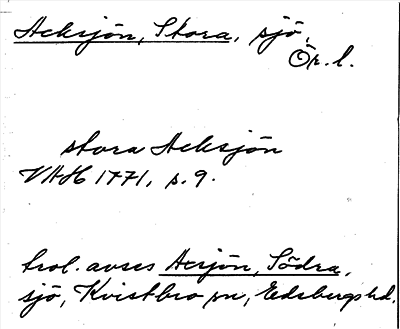 Acksjön, Stora, sjö,
Ör. l.
stora Acksjön
VAH 1771, s. 9.
trol. avses Acsjön, Södra,
sjö, Kvistbro sn, Edsbergs hd.